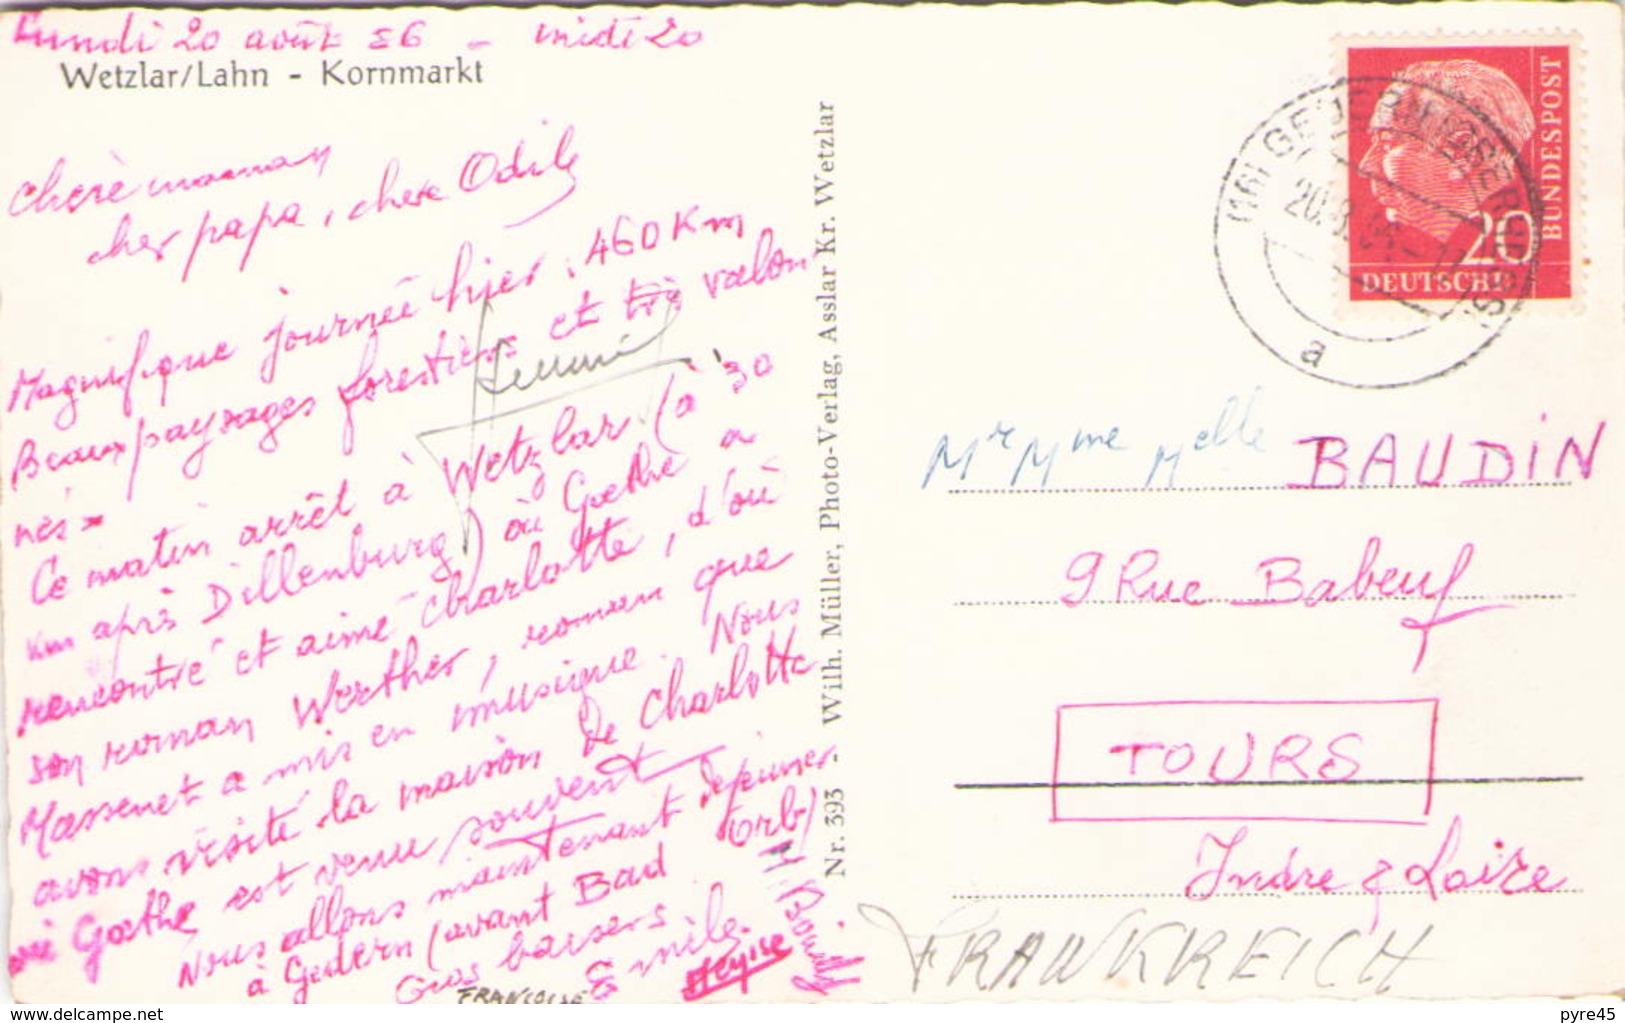 Lundi 20 août 56 - midi 20
Wetzlar/Lahn - Kornmarkt
chère maman
cher papa, chère Odile
Magnifique journée hier : 460 Km
Beaux paysages forestiers et très valon
nés -
Ce matin arrêt à Wetzlar (à 30
km après Dillenburg) où Goethe a
rencontré et aimé Charlotte, d'où
son roman Werther, roman que
Massenet a mis en musique. Nous
avons visité la maison de Charlotte
où Goethe est venu souvent
Nous allons maintenant déjeuner
à Gedern (avant Bad Orb)
Gros baisers
Emile
FRANÇOISE
Nr. 393 - Wilh. Müller, Photo-Verlag, Asslar Kr. Wetzlar
DEUTSCHE
BUNDESPOST
20
(16) GEDERN
a
Mr Mme Melle BAUDIN
9 Rue Babeuf
TOURS
Indre & Loire
FRANKREICH
www.delcampe.net
pyre45